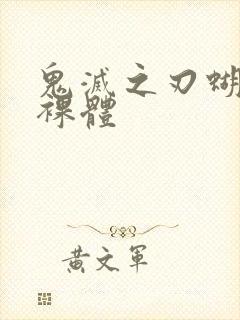 鬼滅之刃蝴
裸體
黃文軍